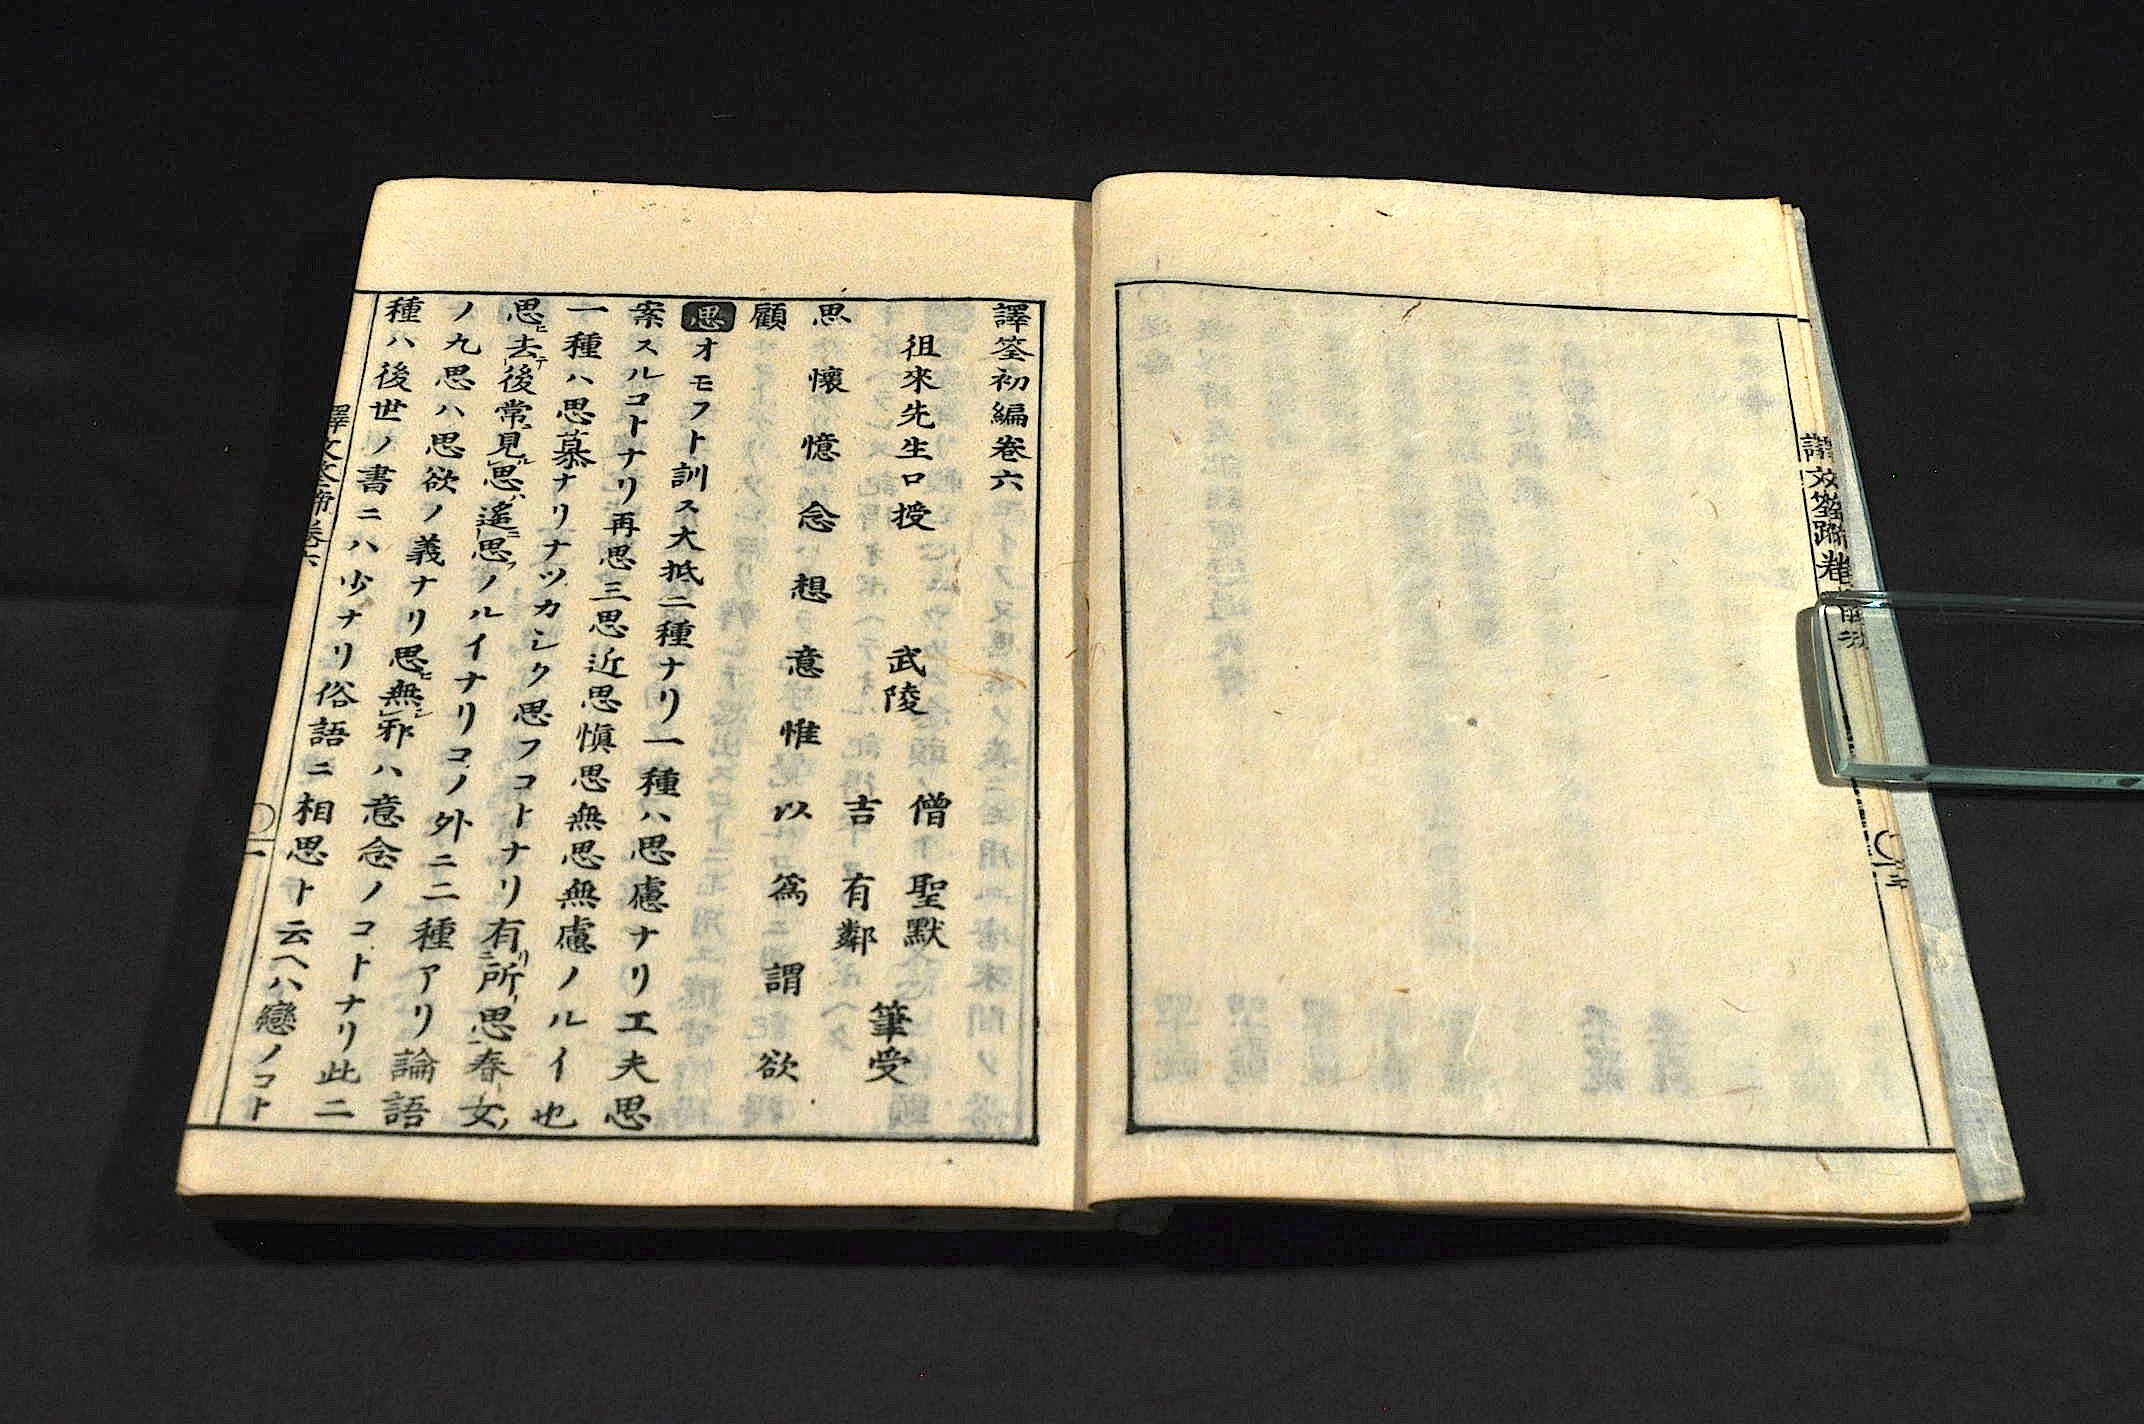 譯筌初編卷六
徂來先生口授
武陵
僧聖默
吉有鄰
筆受
思懷憶念想意惟以爲謂欲
顧
思オモフト訓ス大抵二種ナリ一種ハ思慮ナリ工夫思
案スルコトナリ再思三思近思愼思無思無慮ノルイ也
一種ハ思慕ナリナツカシク思フコトナリ有所思春女
思去後常見思遙思ノルイナリコノ外ニ二種アリ論語
ノ九思ハ思欲ノ義ナリ思無邪ハ意念ノコトナリ此二
種ハ後世ノ書ニハ少ナリ俗語ニ相思ト云ヘハ戀ノコト